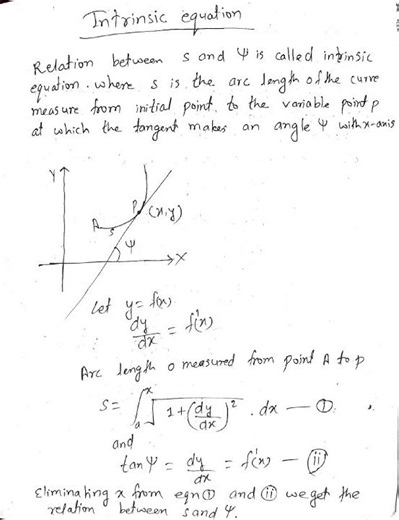 Intrinsic equation
Relation between s and ψ is called intrinsic
equation. where s is the arc length of the curve
measure from initial point to the variable point p
at which the tangent makes an angle ψ with x-axis
Y
P (x,y)
A
s
ψ
X
Let y = f(x)
dy/dx = f'(x)
Arc length o measured from point A to p
S = ∫_a^x √(1+(dy/dx)²) . dx — ①
and
tan ψ = dy/dx = f'(x) — ⓘⓘ
Eliminating x from eqn ① and ⓘⓘ we get the
relation between s and ψ.